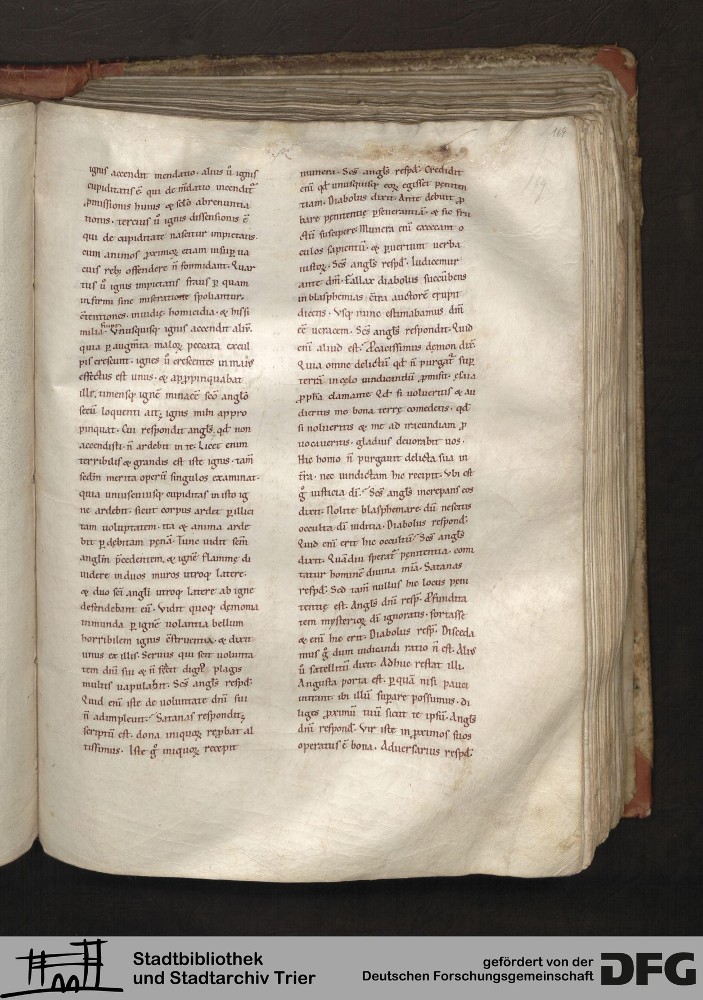 169
149
ignis accendit mendatio. alius ũ ignis
cupiditatis ẽ qui de m̃datio incendit᷑
ꝓmissionis huius & sc̃lo abrenuntia
tionis. tercius ũ ignis dissensionis ẽ
qui de cupiditate nascitur impietatis.
cum animos ꝓximoꝝ etiam insup ua
cuis reb; offendere ñ formidant. Quar
tus ũ ignis impietatis fraus ꝑ quam
infirmi sine miseratione spoliantur.
c̃tentiones. inuidię homicidia. & his si
milia. Vnusquisq; ignis accendit alim̃.
quia ꝑ augm̃ta maloꝝ peccata excul
pis crescunt. ignes ũ crescentes in maius
effectus est unus. & apꝑpinquabat
illi. timensq; ignẽ minacẽ sc̃o anglo
secũ loquenti ait; ignis mihi appro
pinquat. Cui respondit angls̃. qđ non
accendisti. ñ ardebit in te. Licet enim
terribilis & grandis est iste ignis. tam̃
sedm̃ merita operũ singulos examinat.
quia uniuscuiusq; cupiditas in isto ig
ne ardebit. sicut corpus ardet ꝑ illici
tam uoluptatem. ita & anima arde
bit ꝑ debitam penã. Tunc uidit sem̃
anglm̃ p̃cedentem. & ignẽ flammę di
uidere in duos muros utroq; latere.
& duo sc̃i angli utroq; latere ab igne
defendebant eũ. Vidit quoq; demonia
inmunda ꝑ ignẽ uolantia bellum
horribilem ignis c̃struentia. & dixit
unus ex illis. Seruus qui scit uolunta
tem dm̃ sui & ñ fecit digñ. plagis
multis uapulabit. Scs̃ angls̃ respd̃.
Quid enĩ iste de uoluntate dm̃ sui
ñ adimpleuit. Satanas respondit;
scriptũ est. dona iniquoꝝ reꝓbat al
tissimus. Iste g̊ iniquoꝝ recepit
munera. Scs̃ angls̃ respd̃. Credidit
enĩ qđ unusquisq; eoꝝ egisset peniten
tiam. Diabolus dixit. Ante debuit ꝓ
bare penitentię ꝑseuerantiã. & sic fru
ctũ suscipere. Munera enĩ excecant o
culos sapientũ. & ꝑuertunt uerba
iustoꝝ. Scs̃ angls̃ respd̃. Iudicemur
ante dm̃. Fallax diabolus succũbens
in blasphemias c̃tra auctorẽ erupit
dicens. Vsq; nunc estimabamus dm̃
eẽ ueracem. Scs̃ angls̃ respondit. Quid
enĩ aliud est. Ꝓcacissimus demon dix̃
Quia omne delictũ qđ ñ purgat᷑ sup
terrã in cęlo uindicandũ ꝓmisit. esaia
ꝓph̃a clamante. Qđ si uolueritis & au
dieritis me bona terrę comedetis. qđ
si nolueritis & me ad iracundiam ꝓ
uocaueritis. gladius deuorabit uos.
Hic homo ñ purgauit delicta sua in
tr̃a. nec uindictam hic recepit. Vbi est
g̊ iusticia dĩ. Scs̃ angls̃ increpans eos
dixit. Nolite blasphemare dũ nescitis
occulta dĩ iuditia. Diabolus respond̃.
Quid enĩ erit hic occultũ. Scs̃ angls̃
dixit. Quãdiu sperat᷑ penitentia. comi
tatur hominẽ diuina mĩa. Satanas
respd̃. Sed tam̃ nullus hic locus peni
tentię est. Angls̃ dnĩ resp̃. Ꝓfundita
tem mysterioꝝ dĩ ignoratis. fortasse
& enĩ hic erit. Diabolus resp̃. Disceda
mus g̊ dum iudicandi ratio ñ est. Alius
ũ satellitũ dixit. Adhuc restat illi.
Angusta porta est. ꝑ quã nisi pauci
intrant. ibi illũ supare possumus. di
liges ꝓximũ tuũ sicut te ipsũ. Angls̃
dnĩ respond̃. Vir iste in ꝓximos suos
operatus ẽ bona. Aduersarius respd̃.
Stadtbibliothek
und Stadtarchiv Trier
gefördert von der
Deutschen Forschungsgemeinschaft
DFG